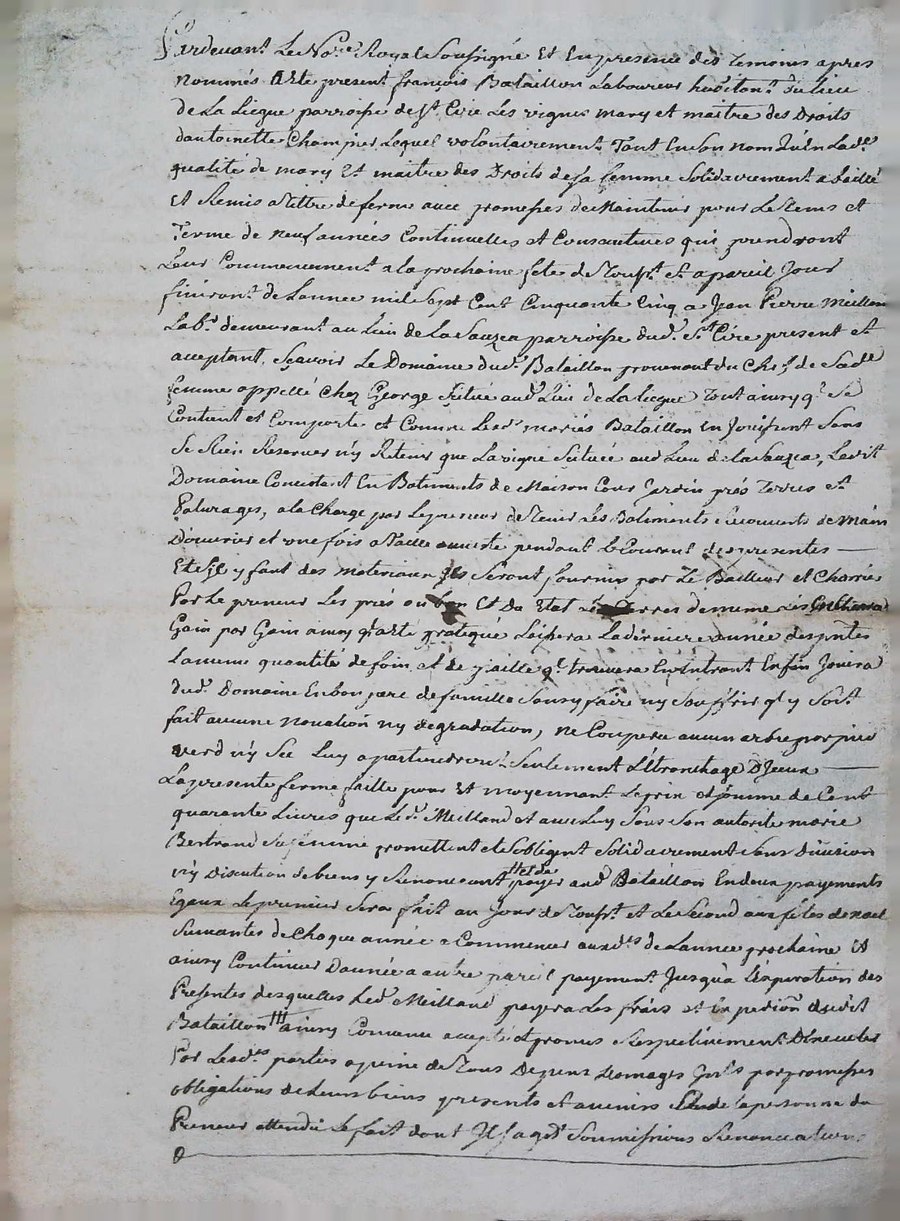 Pardevant Le No.re Royal Soussigné Et En presence des temoins apres
nommés Acte present francois Bataillon Laboureur habitant du lieu
de La Liegue parroisse de S.t Cire Les vignes mary et maitre des Droits
dantoinette Champier Lequel volontairement Tant En son nom Qu'En Lad.e
qualité de mary Et maitre des Droits de sa femme Solidairement a baillé
Et Remis a titre de ferme avec promesses de Maintenir pour Le tems et
Terme de neuf années Continuelles et Consecutives qui prendront
Leur Commencement a la prochaine fete de Touss.t et a pareil Jour
finiront de Lannée mil Sept Cent Cinquante Cinq a Jean Pierre Meilland
Lab.r demeurant au Lieu de La Sauzea parroisse dud. S.t Cire present et
acceptant, Sçavoir Le Domaine dud. Bataillon provenant du Chef de Sad.e
femme appellé Chez George Situé aud. Lieu de La liegue Tout ainsy q.l Se
Contient et Comporte et Comme Lesd. mariés Bataillon En Jouissent Sans
Se Rien Reserver ny Retenir que La vigne Scituée aud. Lieu de la Sauzea, Ledit
Domaine Consistant En Batiments de Maison Cour Jardin prés Terres et
Paturages, a la Charge par Le preneur de Tenir Les Batiments de main
D'ouvrier et une fois a Taille ouverte pendant le Courant des presentes —
Et s'Il y faut des materiaux Ils Seront fournis par Le Bailleur et Charriés
Par Le preneur Les prés En bon Et Du Etat Les terres de meme
Gain par Gain ainsy q.l a été pratiqué Laissera La derniere année des pntes
La meme quantité de foin et de paille q.l trouvera En Entrant Enfin Jouira
dud. Domaine En bon pere de famille Sans y faire ny Souffrir q.l y Soit
fait aucune novation ny degradation, ne Coupera aucun arbre par pied
verd ny Sec Luy apartiendront Seulement L'Etronchage D'Iceux —
La presente ferme faitte pour Et moyennant Le prix et Somme de Cent
quarante Livres que Led. Meilland et avec Luy Sous Son autorité marie
Bertrand Sa femme promettent et S'obligent Solidairement Sans Division
ny Discution de biens y Renonceant et de payer aud. Bataillon En deux payements
Egaux Le premier Sera fait au Jour de Touss.t et Le Second aux fêtes de noel
Suivantes de Chaque année a Commencer auxd.es de Lannée prochaine Et
ainsy Continuer D'année a autre pareil payement Jusqu'à L'Expiration des
Presentes desquelles Led. Meilland payera Les frais et Expedition audit
Bataillon ainsy Convenu accepté et promis Respectivement D'Executer
Par Lesd.es parties a peine de Tous Depens Domages Int.ts par promesses
obligations de Leurs biens presents et avenirs de la personne du
Preneur attendu Le fait dont Il s'agit Soumissions Renonciations